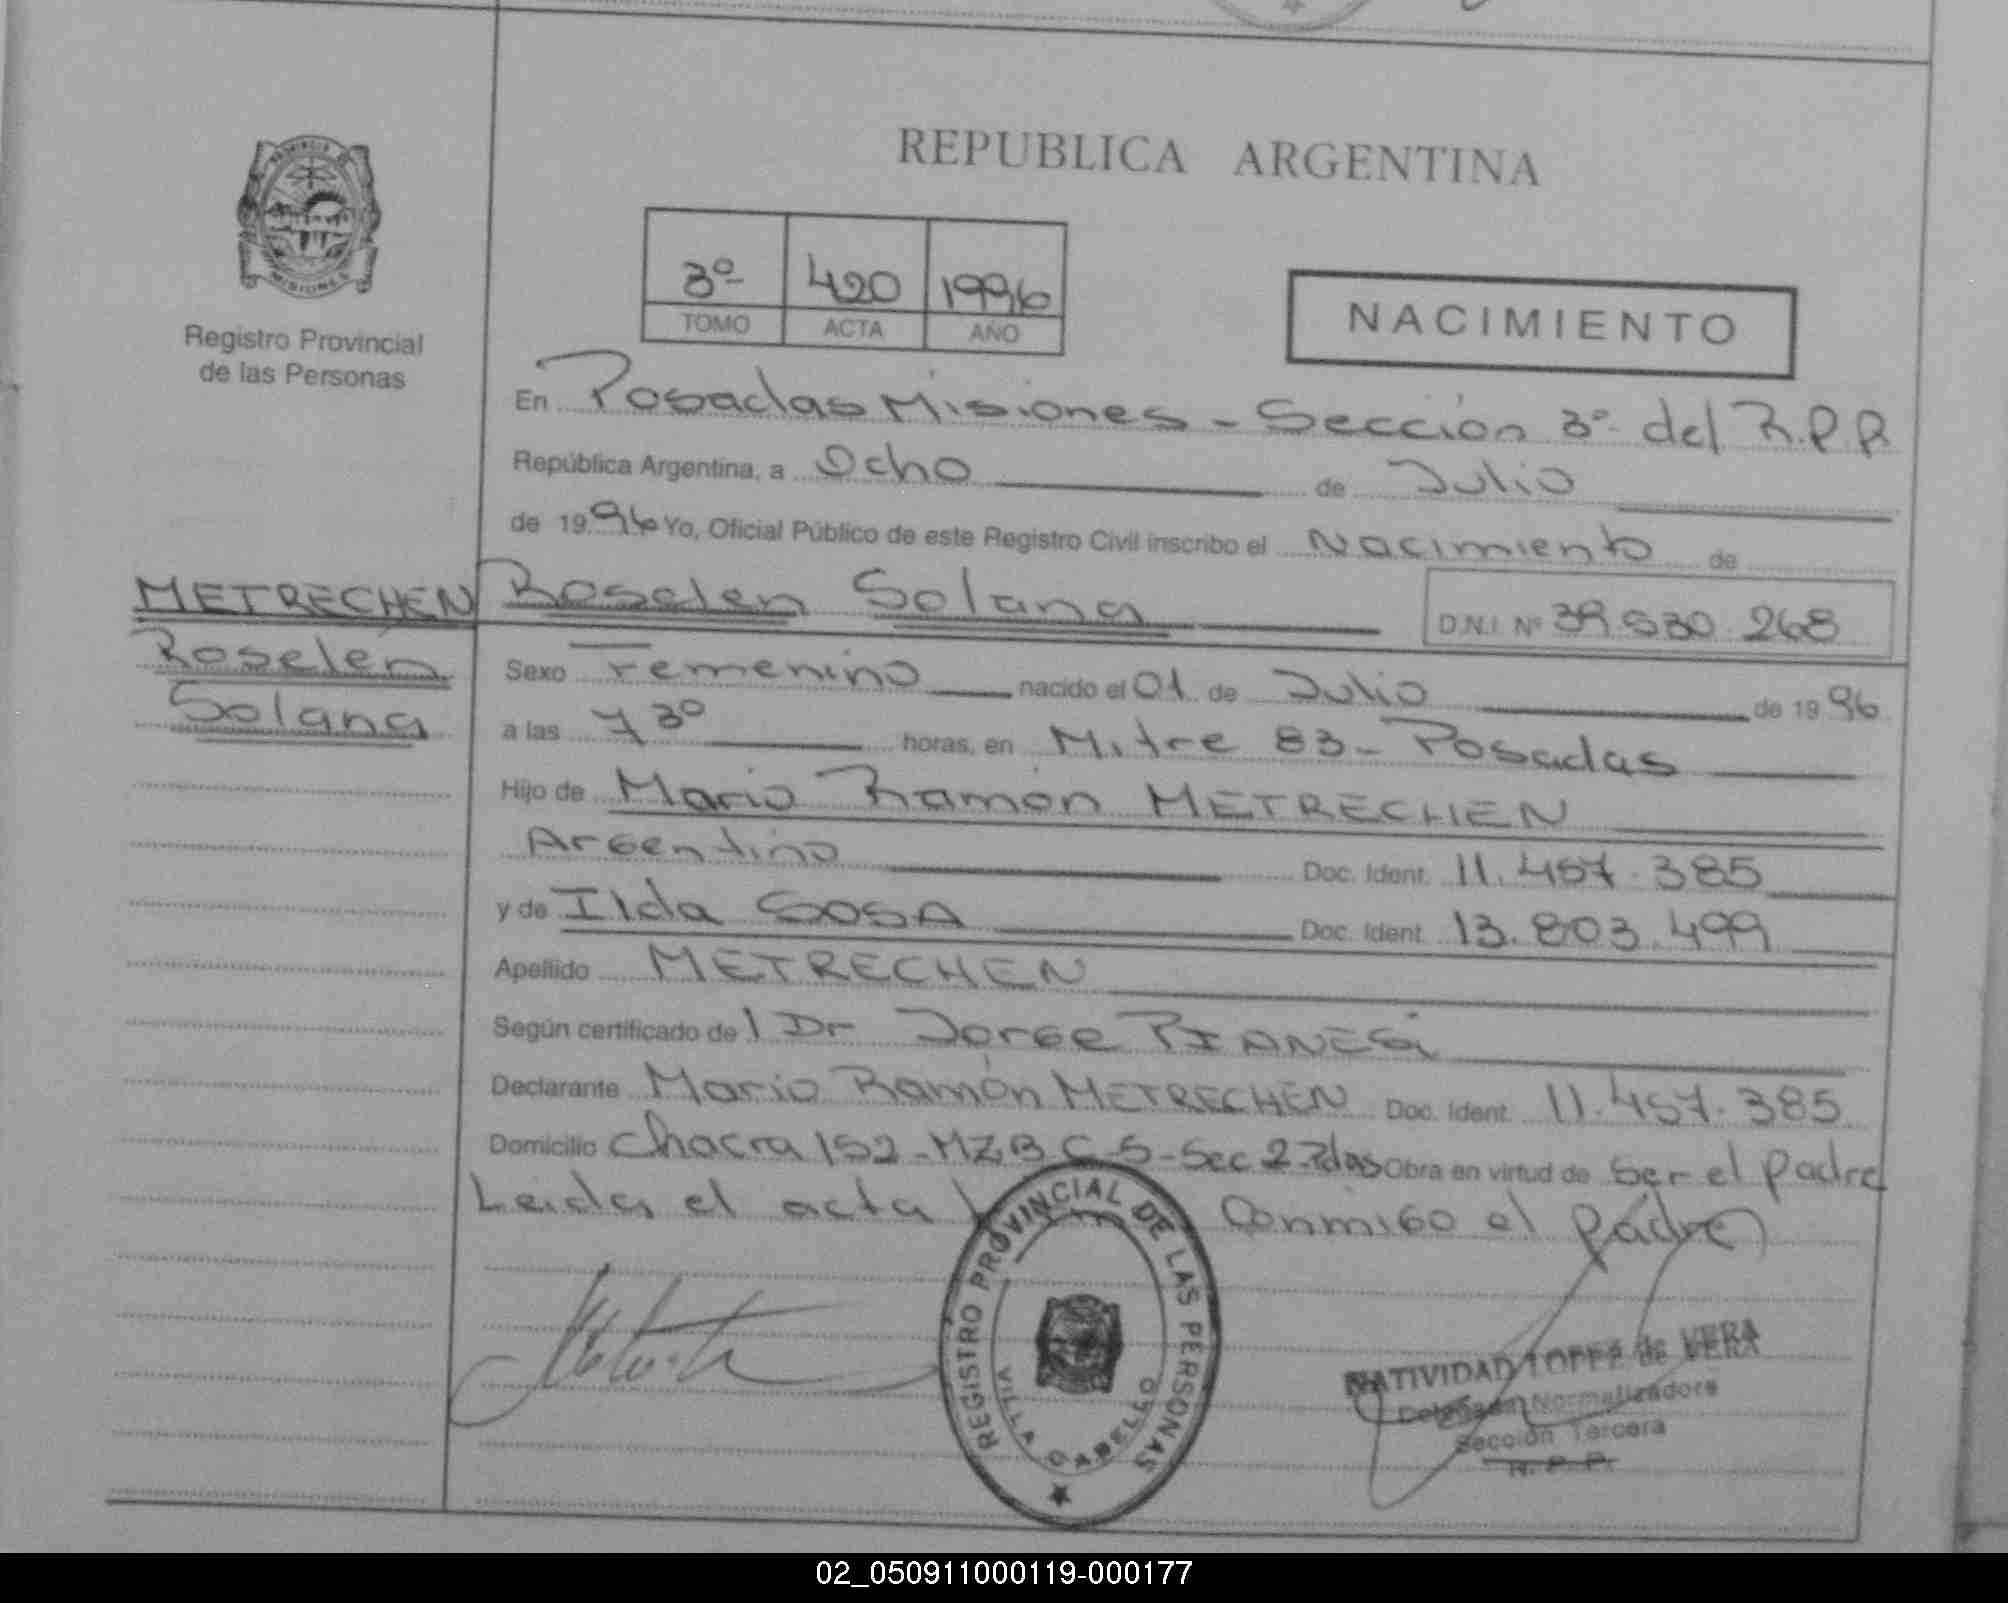 REPUBLICA ARGENTINA
PROVINCIA DE
MISIONES
Registro Provincial
de las Personas
3º 420 1996
TOMO ACTA AÑO
NACIMIENTO
En Posadas Misiones - Sección 3º del R.P.P.
República Argentina, a Ocho de Julio
de 1996 Yo, Oficial Público de este Registro Civil inscribo el Nacimiento de
METRECHEN
Roselen
Solana
Roselen Solana D.N.I. Nº 39.530.268
Sexo Femenino nacido el 01 de Julio de 1996
a las 7 30 horas, en Mitre 83 - Posadas
Hijo de Mario Ramón METRECHEN
Argentino Doc. Ident. 11.457.385
y de Ilda SOSA Doc. Ident. 13.803.499
Apellido METRECHEN
Según certificado del Dr Jorge PIANESi
Declarante Mario Ramón METRECHEN Doc. Ident. 11.457.385
Domicilio Chacra 152 - MZ B C-5 - Sec 2 Pdas Obra en virtud de Ser el padre
Leida el acta Conmigo el padre
REGISTRO PROVINCIAL DE LAS PERSONAS
VILLA CABELLO
NATIVIDAD LOPEZ de VERA
Delegada Normalizadora
Sección Tercera
R. P. P.
02_050911000119-000177